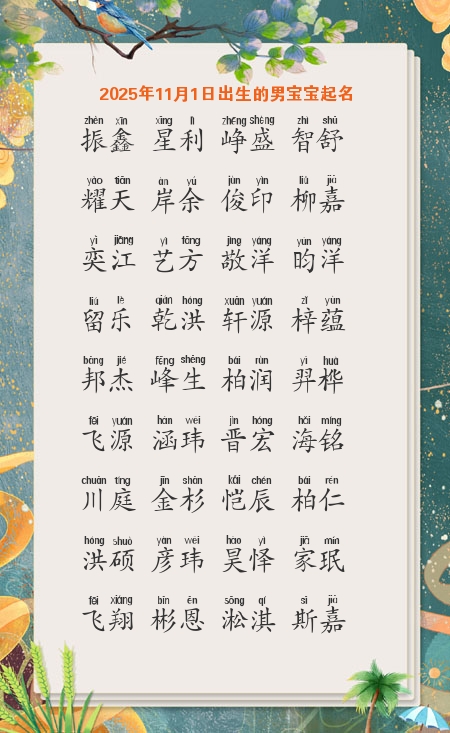 2025年11月1日出生的男宝宝起名
zhèn xīn xīng lì zhēng shèng zhì shū
振鑫 星利 峥盛 智舒
yào tiān àn yú jùn yìn liǔ jiā
耀天 岸余 俊印 柳嘉
yì jiāng yì fāng jìng yáng yún yáng
奕江 艺方 敬洋 昀洋
liú lè qián hóng xuān yuán zǐ yùn
留乐 乾洪 轩源 梓蕴
bāng jié fēng shēng bǎi rùn yì huà
邦杰 峰生 柏润 羿桦
fēi yuán hán wěi jìn hóng hǎi míng
飞源 涵玮 晋宏 海铭
chuān tíng jīn shān kǎi chén bǎi rén
川庭 金杉 恺辰 柏仁
hóng shuò yàn wěi hào yì jiā mín
洪硕 彦玮 昊怿 家珉
fēi xiáng bīn ēn sōng qí sī jiā
飞翔 彬恩 淞淇 斯嘉